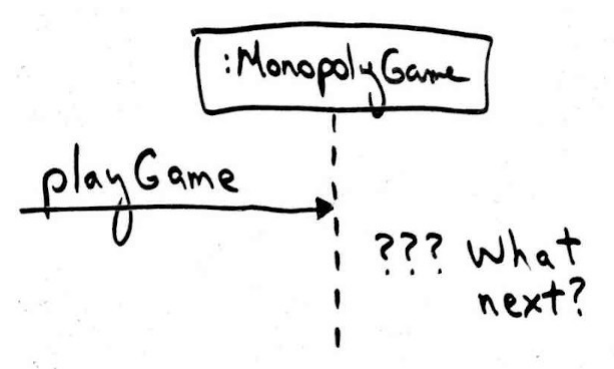 :MonopolyGame
playGame
??? What
next?